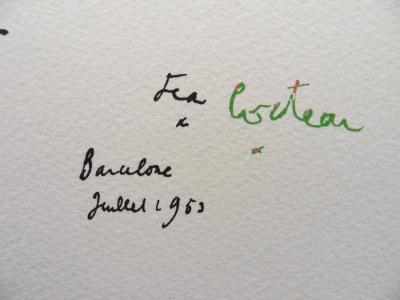 Jean Cocteau
Barcelone
Juillet 1953